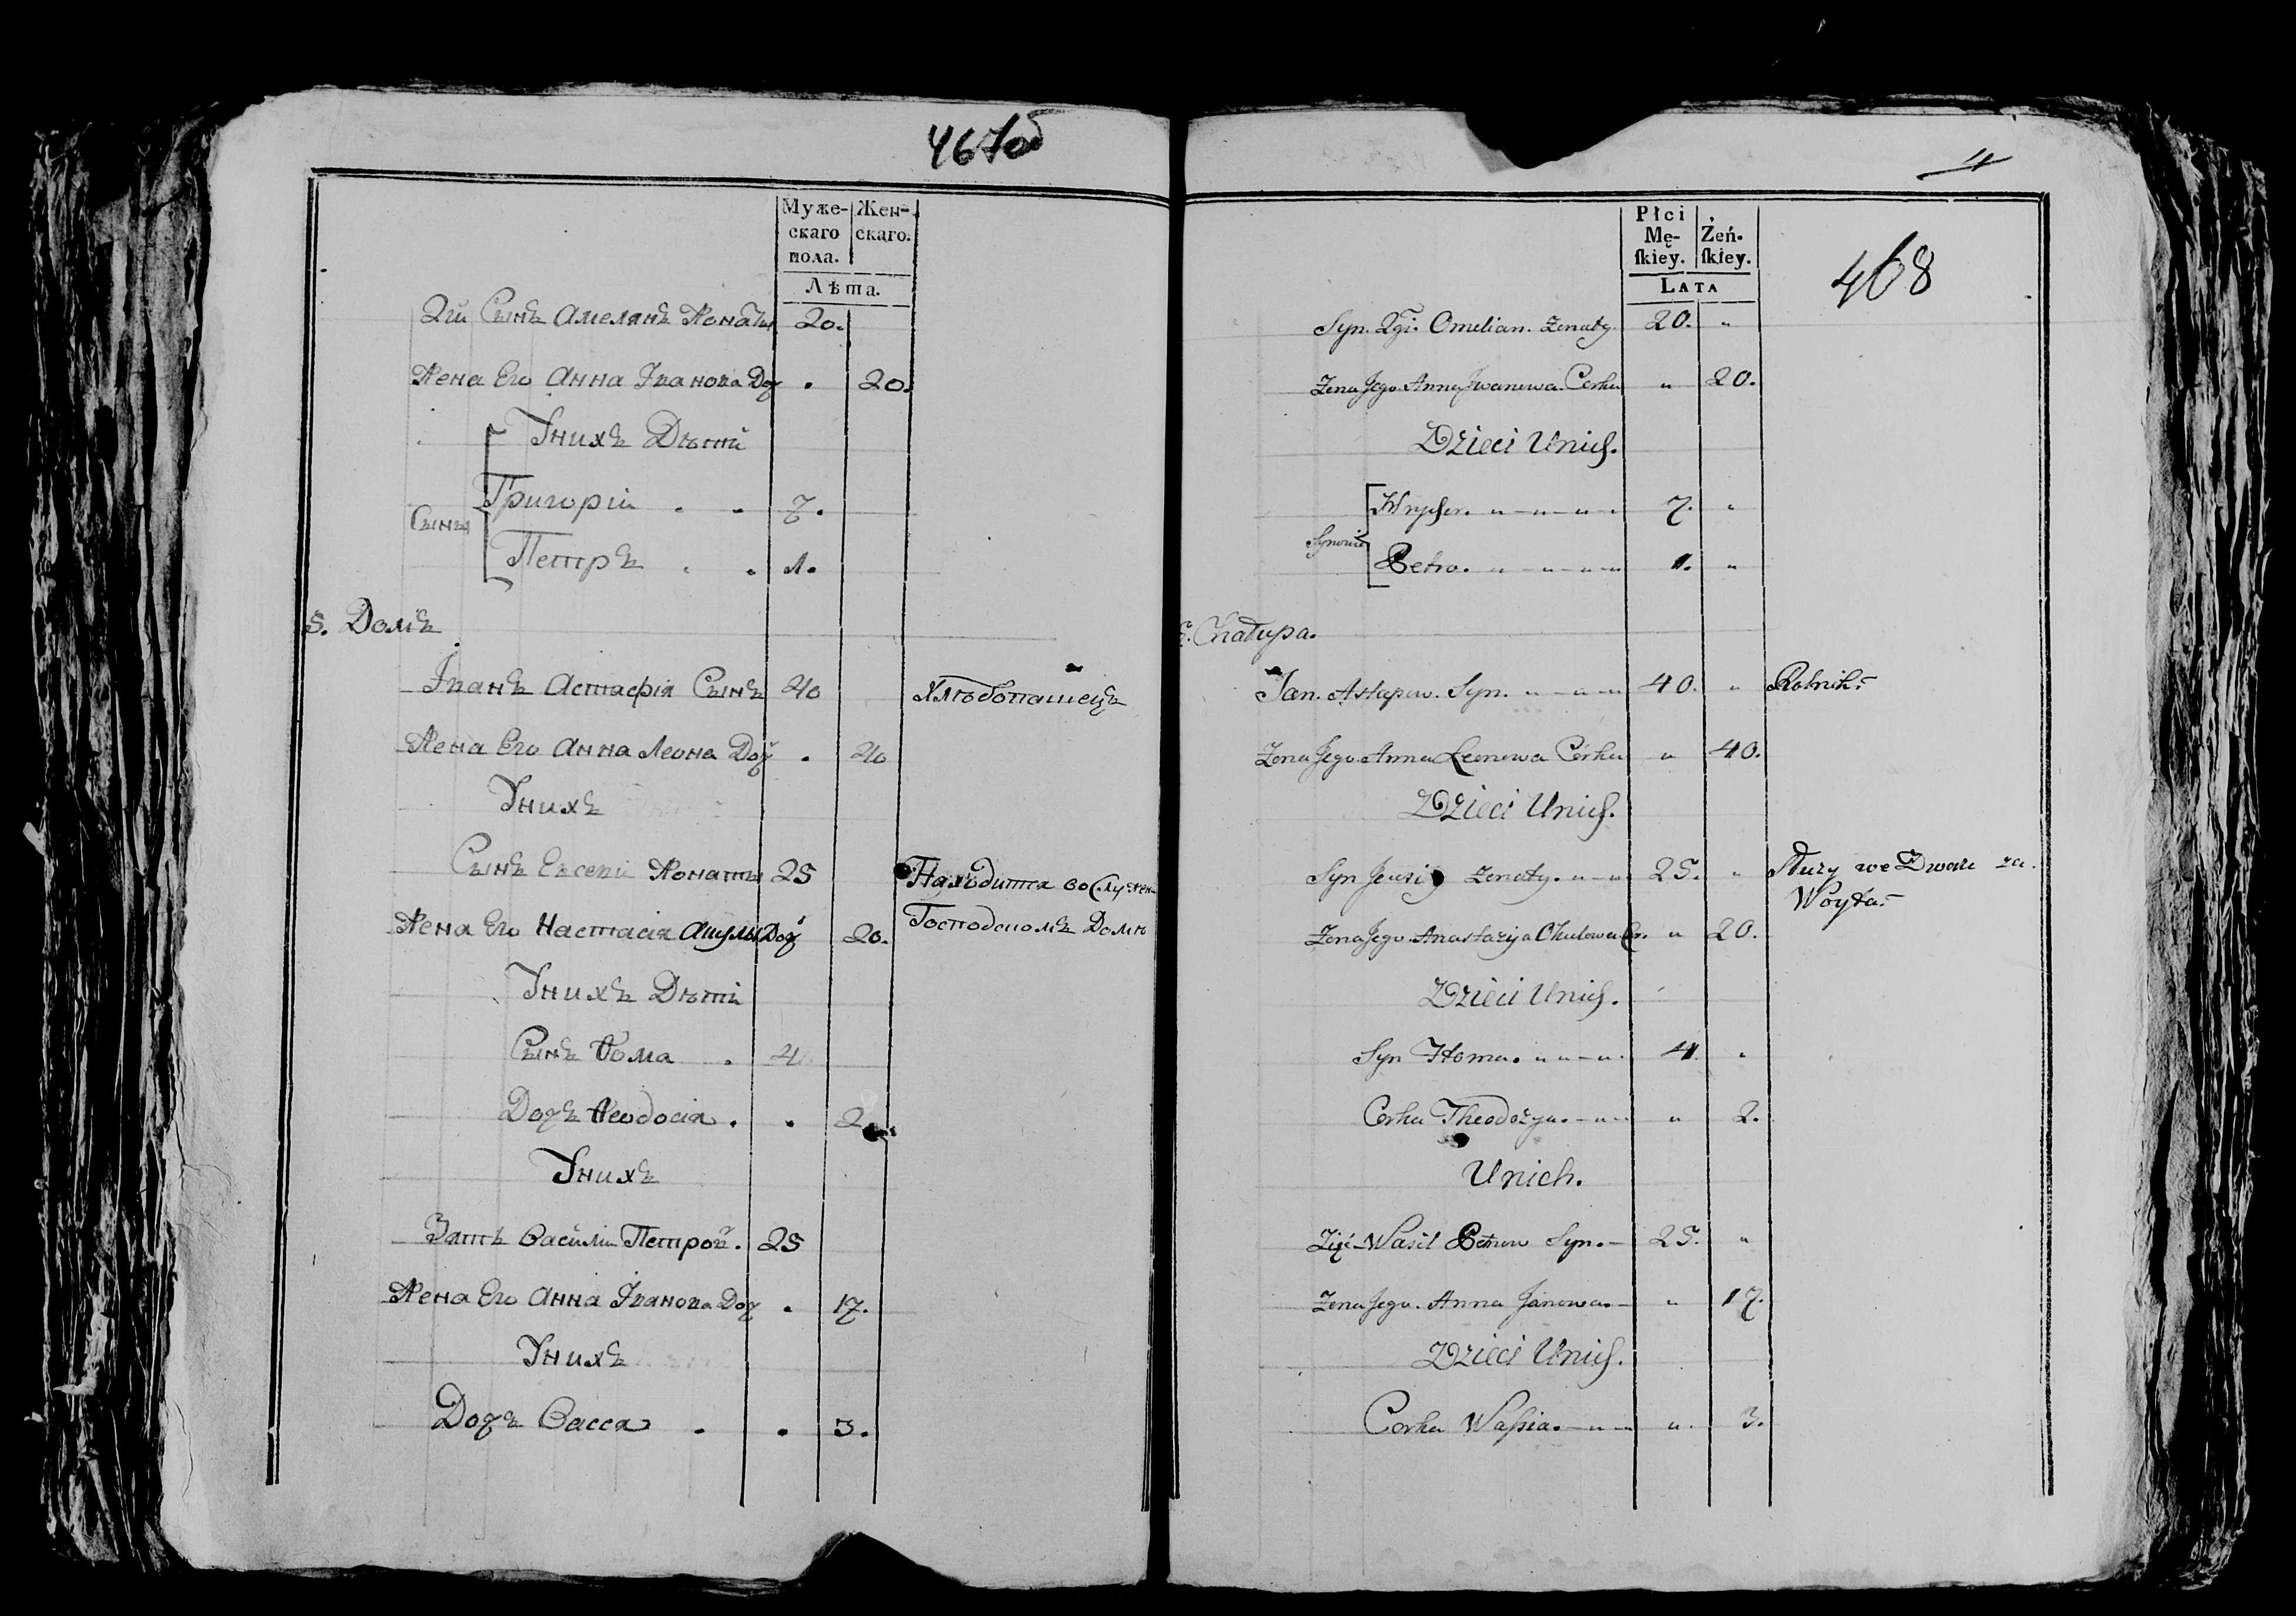 467об
Муже-
скаго
пола.
Жен-
скаго.
Лѣта.
2й Сынъ Амелянъ Жонаты 20.
Жена Его Анна Іванова Доч . 20.
Унихъ Дѣтй
Сыны
Григорій . . 7.
Петръ . . 1.
5. Домъ
Іванъ Астафія Сынъ 40 Хлѣбопашецъ
Жена Его Анна Леона Доч . 40
Унихъ
Сынъ Евсевій Жонаты 25 Находится во Служен
Господском Домѣ
Жена Его Настасія Доч 20.
Унихъ Дѣти
Сынъ Ѳома . 4
Дочъ Ѳеодосія . . 2
Унихъ
Зять Василій Петров. 25
Жена Его Анна Іванова Доч . 17.
Унихъ
Дочъ Васса . . 3.
4
468
Płci
Mę-
ſkiey.
Żeń-
ſkiey.
LATA
Syn. 2gi. Omelian. Zonaty. 20. "
Zona Jego Anna Jwanowa Corka " 20.
Dzieci Unich.
Synowie
Hryhor. 7. "
Petro. 1. "
Chałupa.
Jan. Astapow. Syn. 40. " Rolnik.
Zona Jego Anna Leonowa Córka " 40.
Dzieci Unich.
Syn Zonaty. 25. " Służy we Dworze za
Woyta.
Zona Jego Anastazija Cór. " 20.
Dzieci Unich.
Syn Homa. 4. "
Corka Theodozya. " 2.
Unich.
Zięć Wasil Petrow Syn. 25. "
Zona Jego. Anna Janowa. " 17.
Dzieci Unich.
Corka Waſsia. " 3.